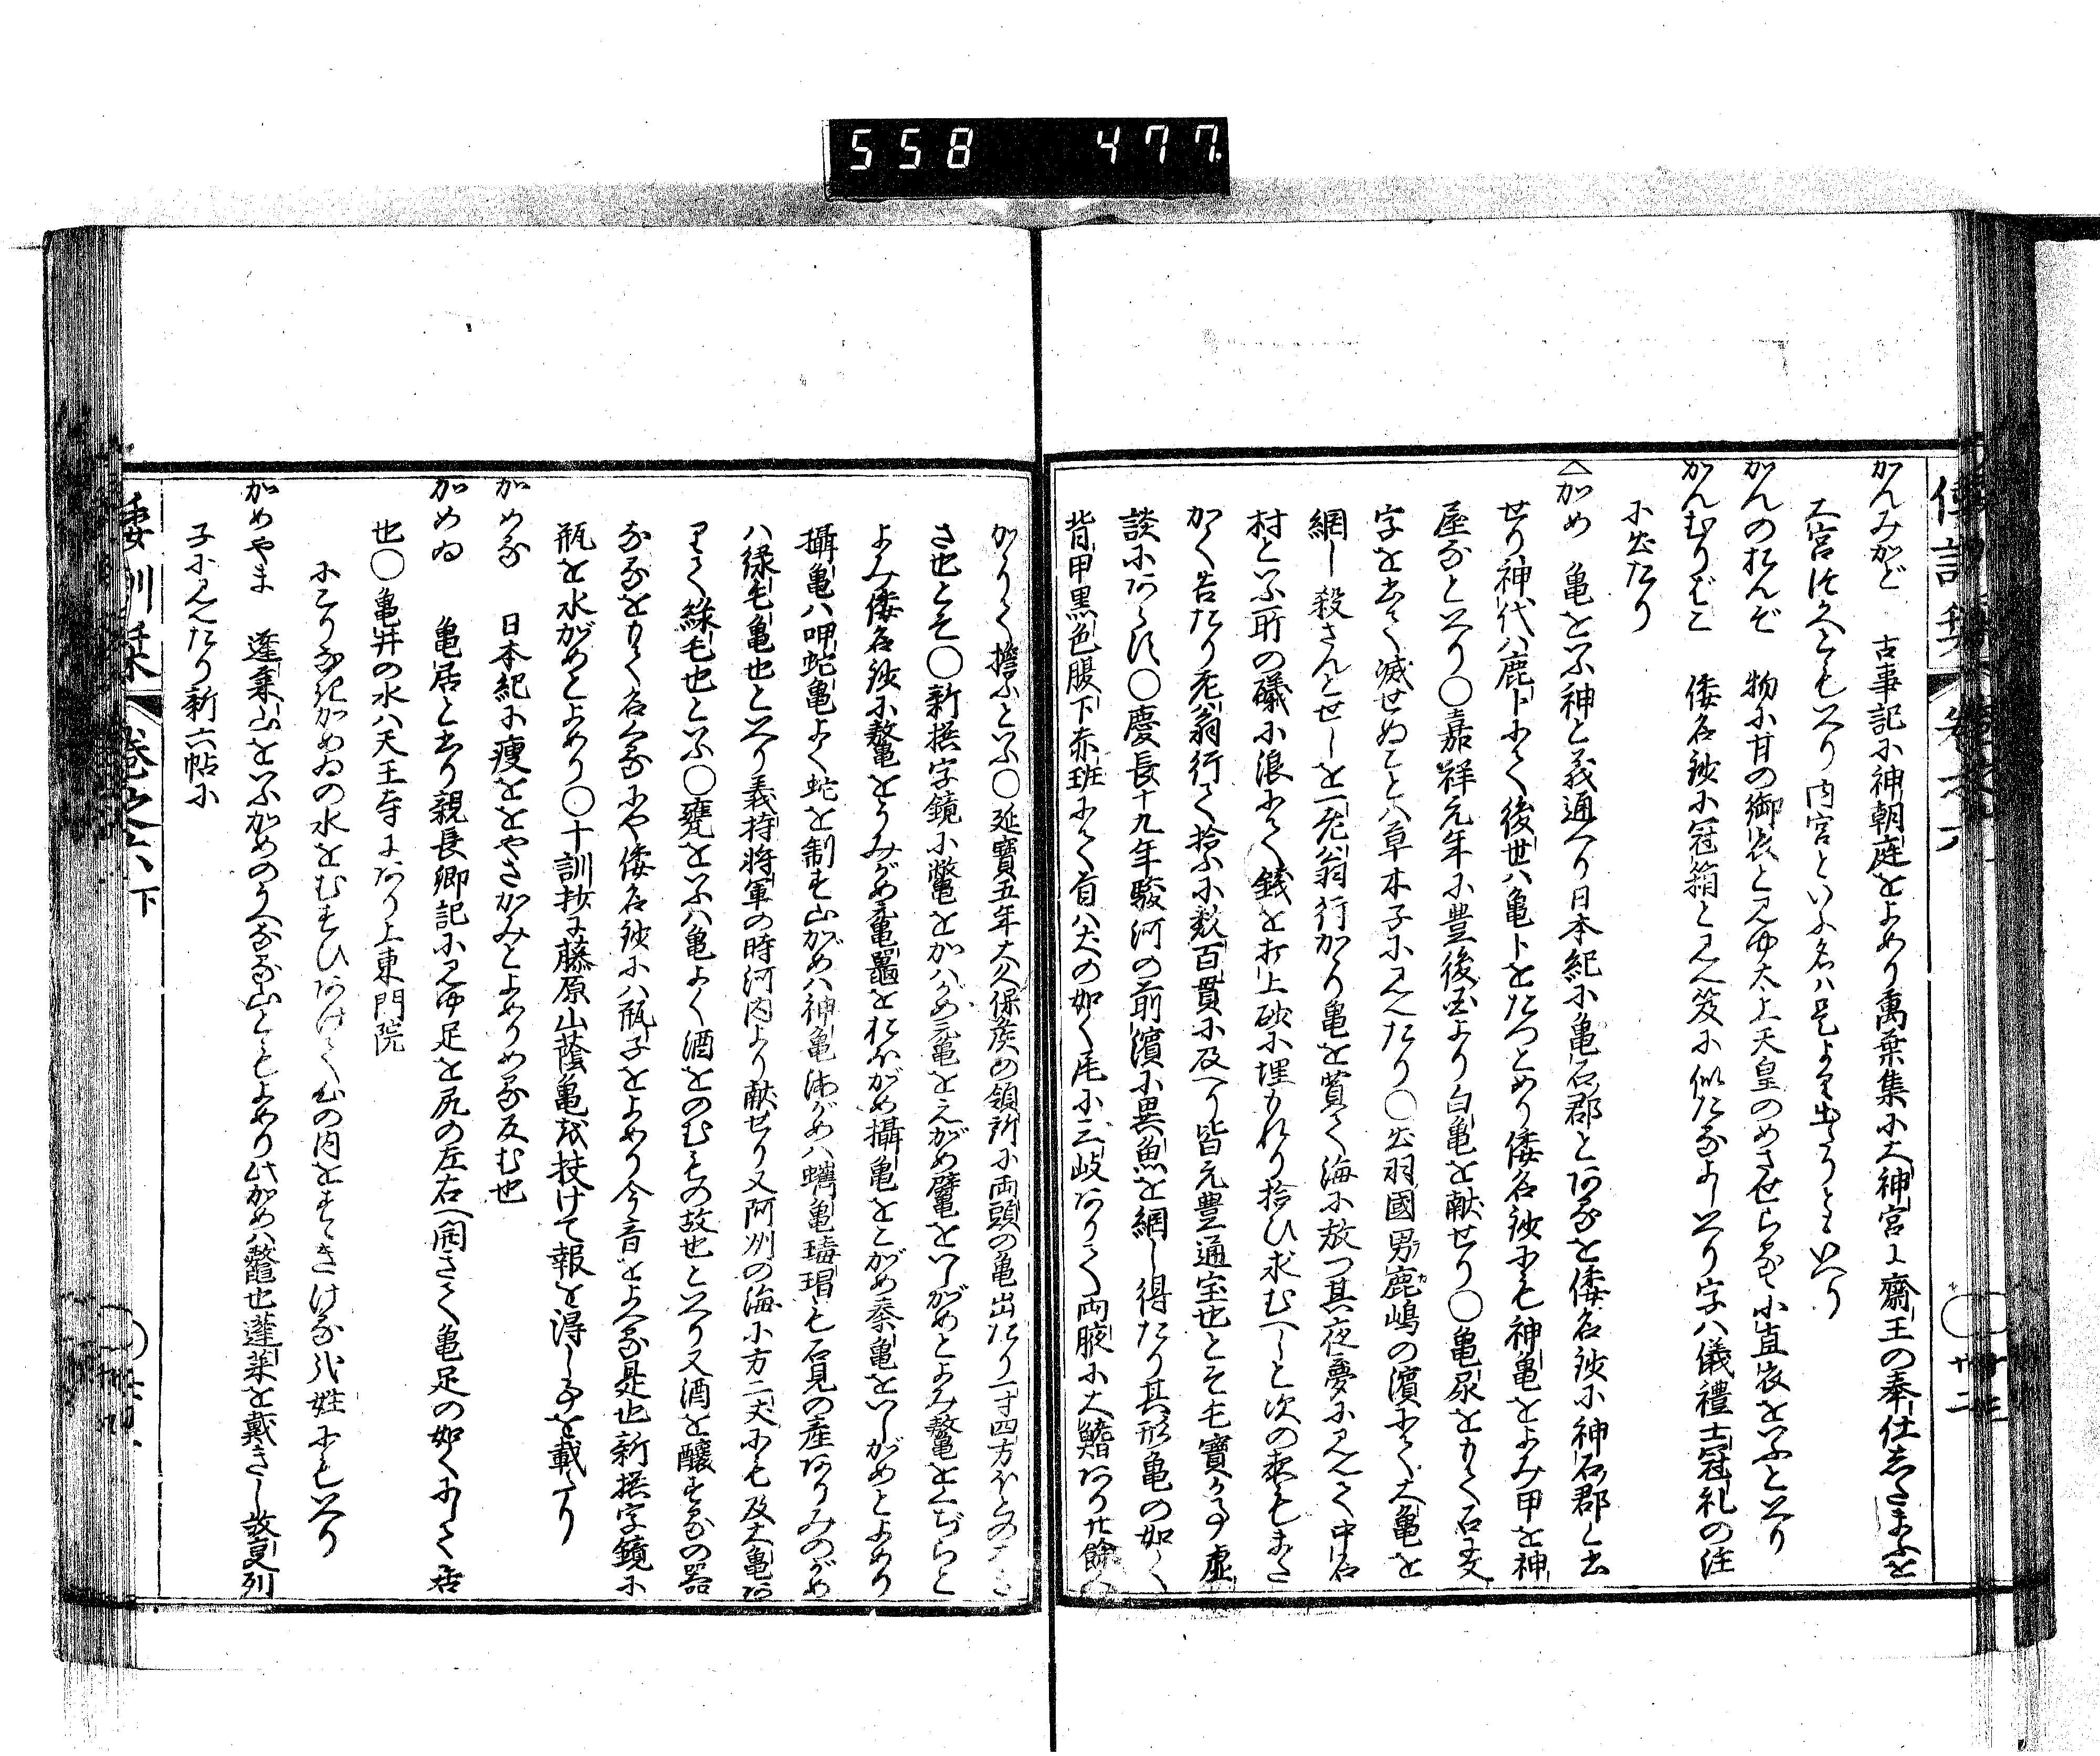 558 477
かんみかど 古事記に神朝庭をよめり萬葉集に大神宮に齋王の奉仕したまふを
大宮つかへともいへり内宮といふ名は是より出たりともいへり
かんのおんぞ 物に甘の御衣と見ゆ太上天皇のめさせらるゝ小直衣をいふといへり
かんむりばこ 倭名鈔に冠箱と見え笈に似たるよしいへり字は儀禮士冠礼の注
に出たり
かめ 亀をいふ神と義通へり日本紀に亀石郡とあるを倭名鈔に神石郡と出
せり神代は鹿卜にて後世は亀卜をたつとめり倭名鈔にも神亀をよみ甲を神
屋なといへり〇嘉祥元年に豊後国より白亀を献せり〇亀尿をもて石に文
字を書て滅せぬこと八草木子に見えたり〇出羽國男鹿嶋の濱にて大亀を
網し殺さんとせしを一老翁行かゝり亀を買て海に放つ其夜夢に見えて中名
村といふ所の礒に浪にて錢を打上砂に埋もれり拾ひ求むへしと次の夜もまた
かく告たり老翁行て拾ふに数百貫に及へり皆元豊通宝也とそ毛寶か事虚
談にあらす〇慶長十九年駿河の前濱に異魚を網し得たり其形亀の如く
背甲黒色腹下赤班にて首は犬の如く尾に三岐ありて両腋に大鰭あり廿餘人
かゝりて擔ふといふ〇延寶五年大久保彦めの領所に両頭の亀出たり一寸四方ほとの大き
さ也とそ〇新撰字鏡に鼈をかはかめ元亀をえがめ鼊をいしがめとよみ鼇をくぢらと
よみ倭名鈔に鼇をうみがめ黿鼉をおほがめ攝亀をこがめ秦亀をいしがめとよめり
攝亀は呷蛇亀よく蛇を制す山がめは神亀海がめは蠵亀瑇瑁も石見の産ありみのがめ
は緑毛亀也といへり義持将軍の時河内より献せり又阿州の海に方二丈にも及大亀あ
りて綠毛也といふ〇甕をいふは亀よく酒をのむもの故也といへり又酒を釀するの器
なるをもて名くるにや倭名鈔には瓶子をよめり今音をよへる是也新撰字鏡に
瓶を水がめとよめり〇十訓抄に藤原山蔭亀を扶けて報を得し事を載たり
かめる 日本紀に瘦ををやさかみとよめりめる反む也
かめゐ 亀居と書り親長卿記に見ゆ足を尻の左右へ開きて亀足の如くにして居
也〇亀井の水は天王寺にあり上東門院
にこりなきかめゐの水をむすひあけて心の内をすゝきけるかな姓にもいへり
かめやま 蓬莱山をいふかめのうへなる山ともよめり此かめは鼇也蓬莱を戴きし故事列
子に見えたり新六帖に
倭訓栞 卷之六下